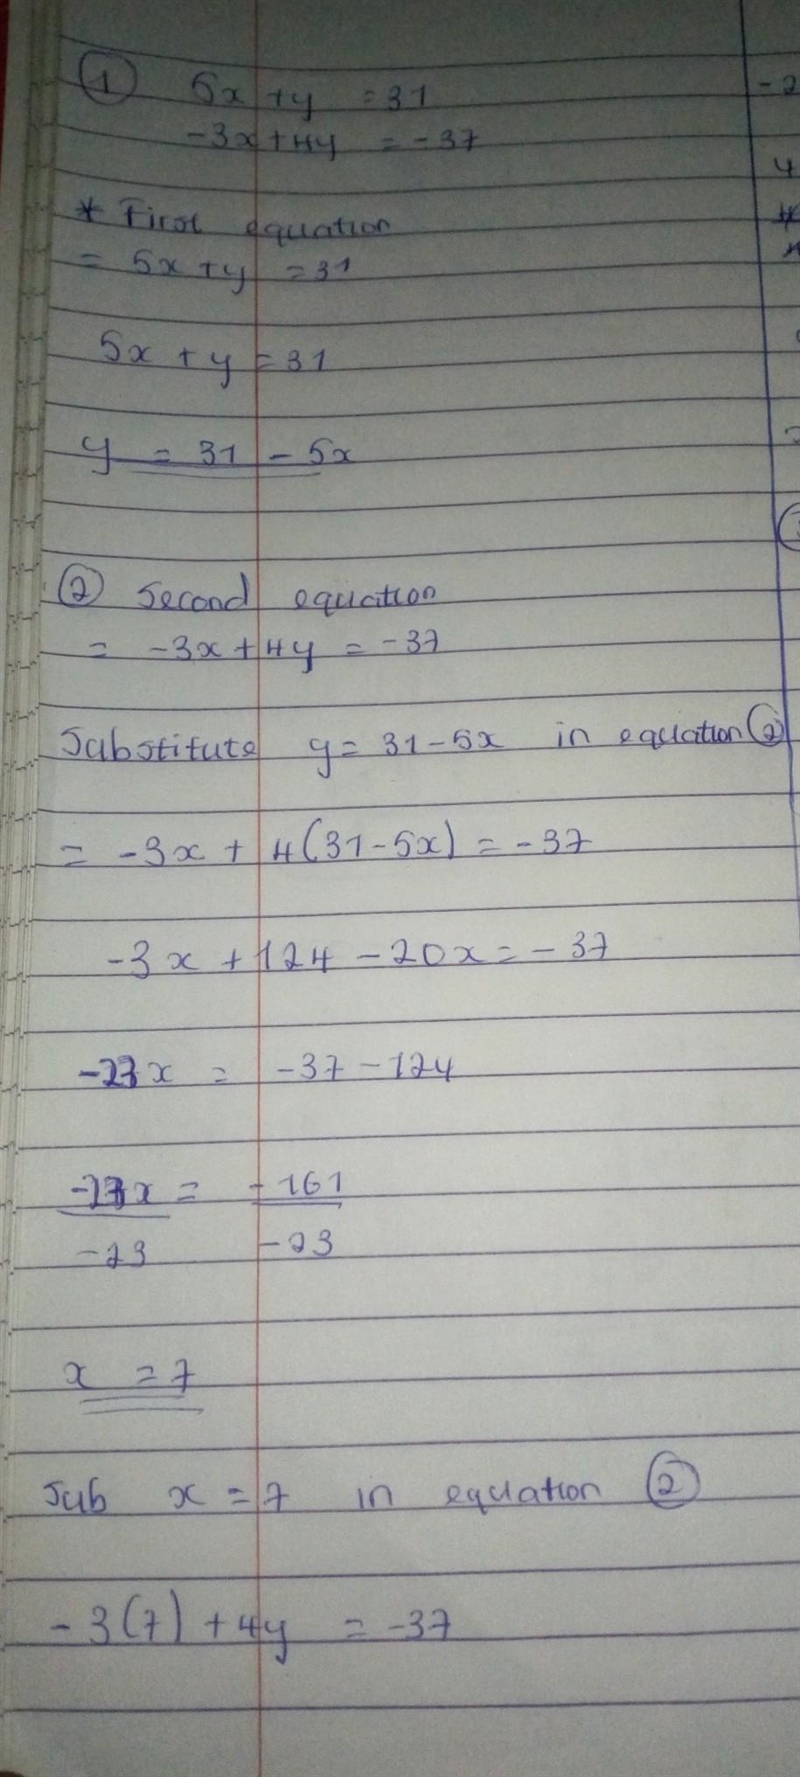 ① 5x + y = 31
-3x + 4y = -37
* First equation
= 5x + y = 31
5x + y = 31
y = 31 - 5x
② Second equation
= -3x + 4y = -37
Substitute y = 31 - 5x in equation ②
= -3x + 4(31 - 5x) = -37
-3x + 124 - 20x = -37
-23x = -37 - 124
-23x = -161
-23 -23
x = 7
Sub x = 7 in equation ②
-3(7) + 4y = -37
-2
4